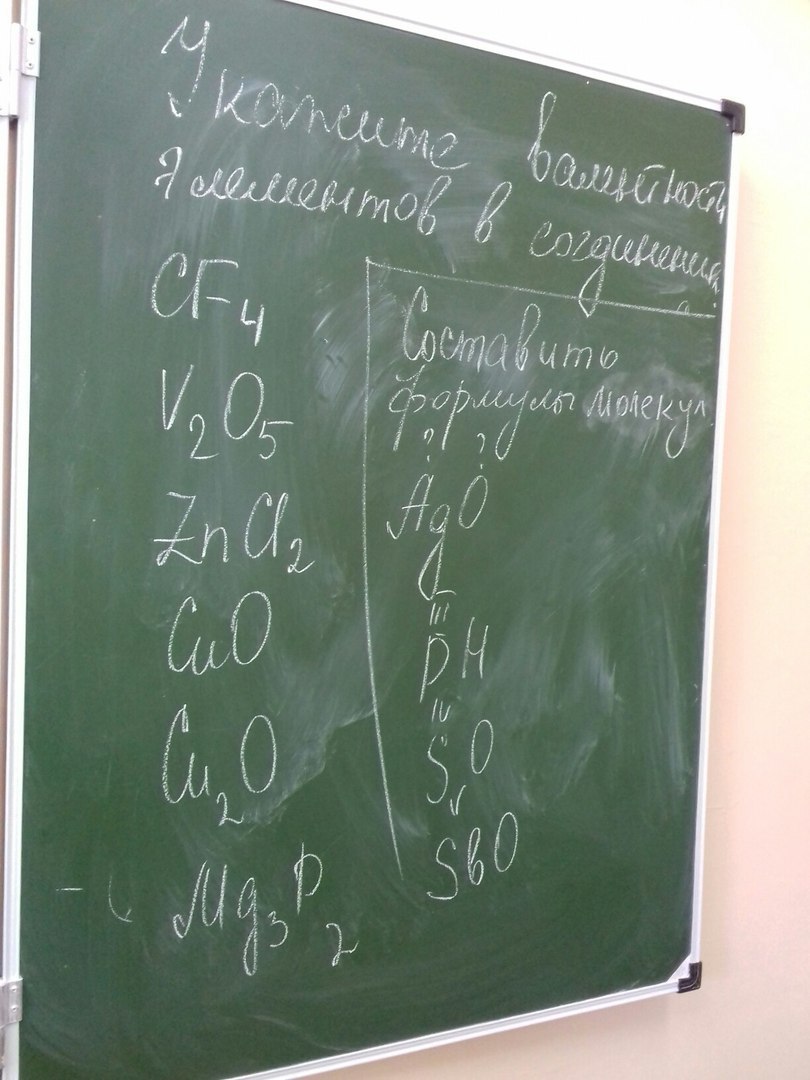 Укажите валентность
элементов в соединениях
CF₄
V₂O₅
ZnCl₂
CuO
Cu₂O
Mg₃P₂
Составить
формулы молекул
? ?
AgO
III
PH
IV
SO
V
SbO